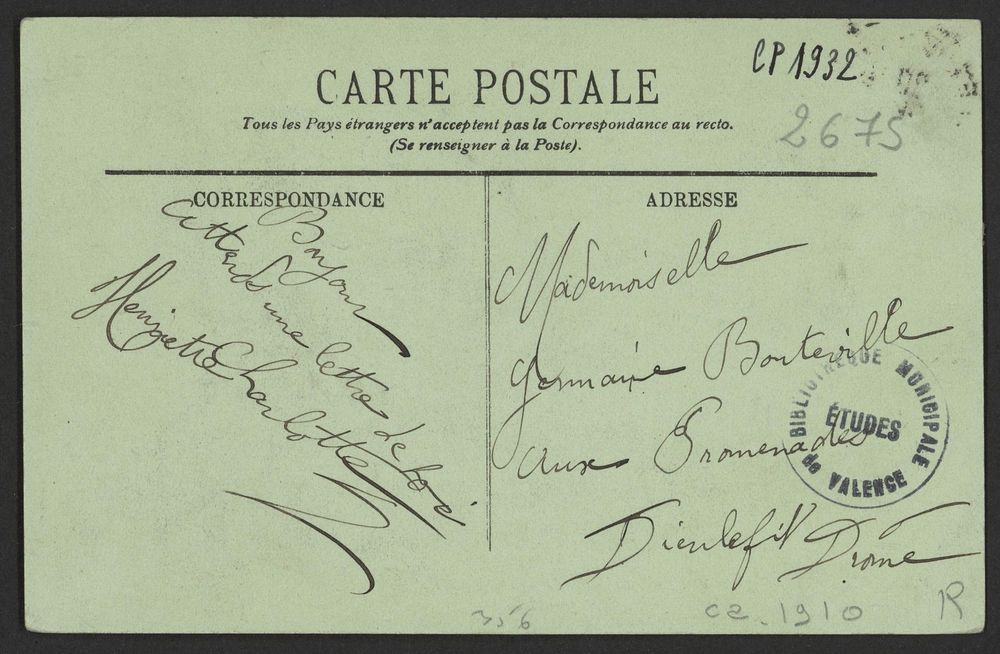 CP 1932
2675
CARTE POSTALE
Tous les Pays étrangers n'acceptent pas la Correspondance au recto.
(Se renseigner à la Poste).
CORRESPONDANCE
Bonjour
attends une lettre de toi
Henriette Charlotte
ADRESSE
Mademoiselle
Germaine Bouteville
aux Promenades
Dieulefit Drome
BIBLIOTHEQUE MUNICIPALE
ÉTUDES
de VALENCE
356
ca. 1910
R